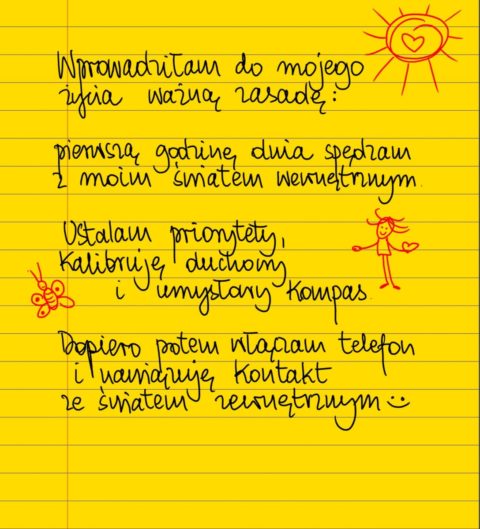 Wprowadziłam do mojego
życia ważną zasadę:
pierwszą godzinę dnia spędzam
z moim światem wewnętrznym.
Ustalam priorytety,
kalibruję duchowy
i umysłowy kompas.
Dopiero potem włączam telefon
i nawiązuję kontakt
ze światem zewnętrznym